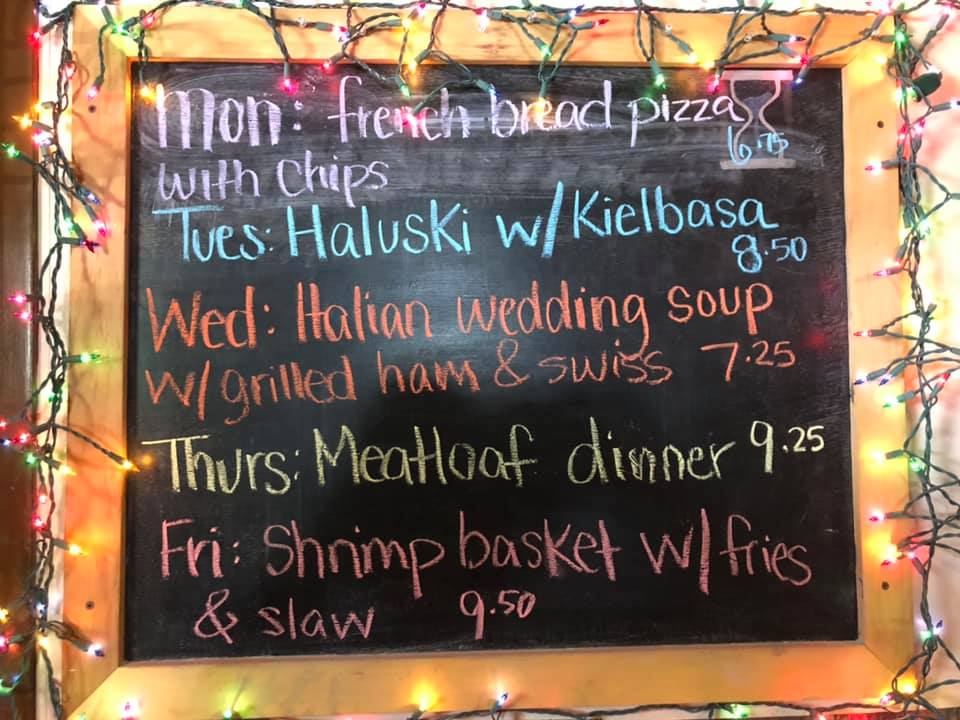 Mon: french bread pizza
6.75
with Chips
Tues: Haluski w/Kielbasa
8.50
Wed: Italian wedding soup
w/grilled ham & swiss 7.25
Thurs: Meatloaf dinner 9.25
Fri: Shrimp basket w/fries
& slaw 9.50